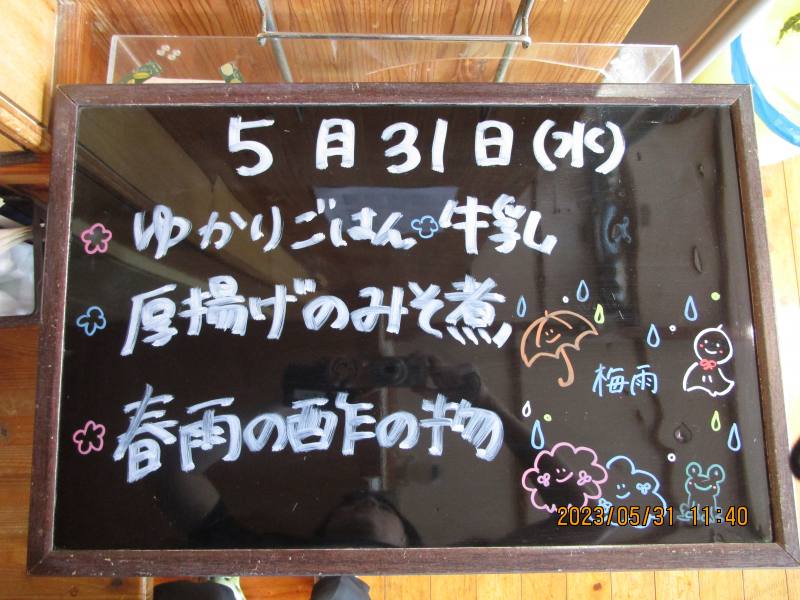 5月31日(水)
ゆかりごはん 牛乳
厚揚げのみそ煮
春雨の酢の物
梅雨
2023/05/31 11:40